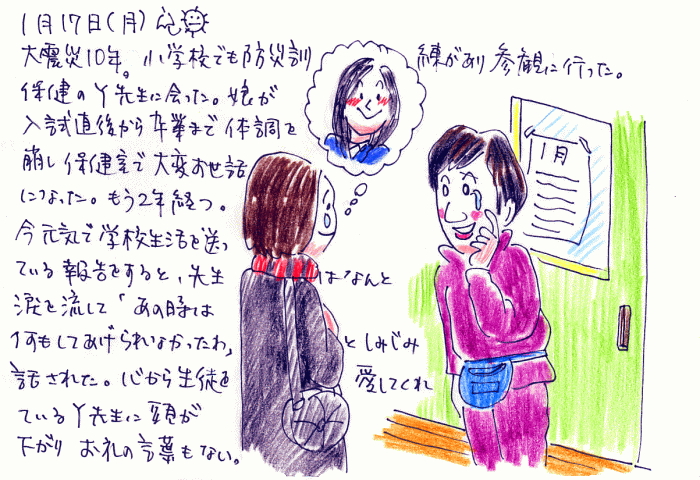 1月17日(月)
大震災10年。小学校でも防災訓練があり参観に行った。
保健のY先生に会った。娘が
入試直後から卒業まで体調を
崩し保健室で大変お世話
になった。もう2年経つ。
今元気で学校生活を送っ
ている報告をすると、先生はなんと
涙を流して「あの時は
何もしてあげられなかったわ」としみじみ
話された。心から生徒を愛してくれ
ているY先生に頭が
下がり お礼の言葉もない。
1月